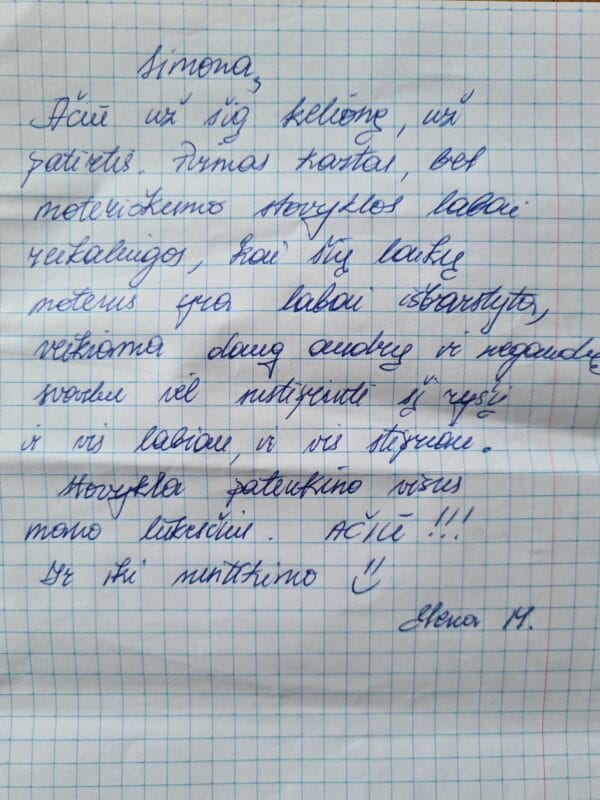 Simona,
Ačiū už šią kelionę, už
patirtis. Pirmas kartas, bet
moteriškumo stovyklos labai
reikalingos, kai šių laikų
moteris yra labai išbarstyta,
veikiama daug audrų ir negandų
svarbu vėl sustiprinti šį ryšį
ir vis labiau, ir vis stipriau.
Stovykla patenkino visus
mano lūkesčius. AČIŪ !!!
Ir iki susitikimo
Elena M.